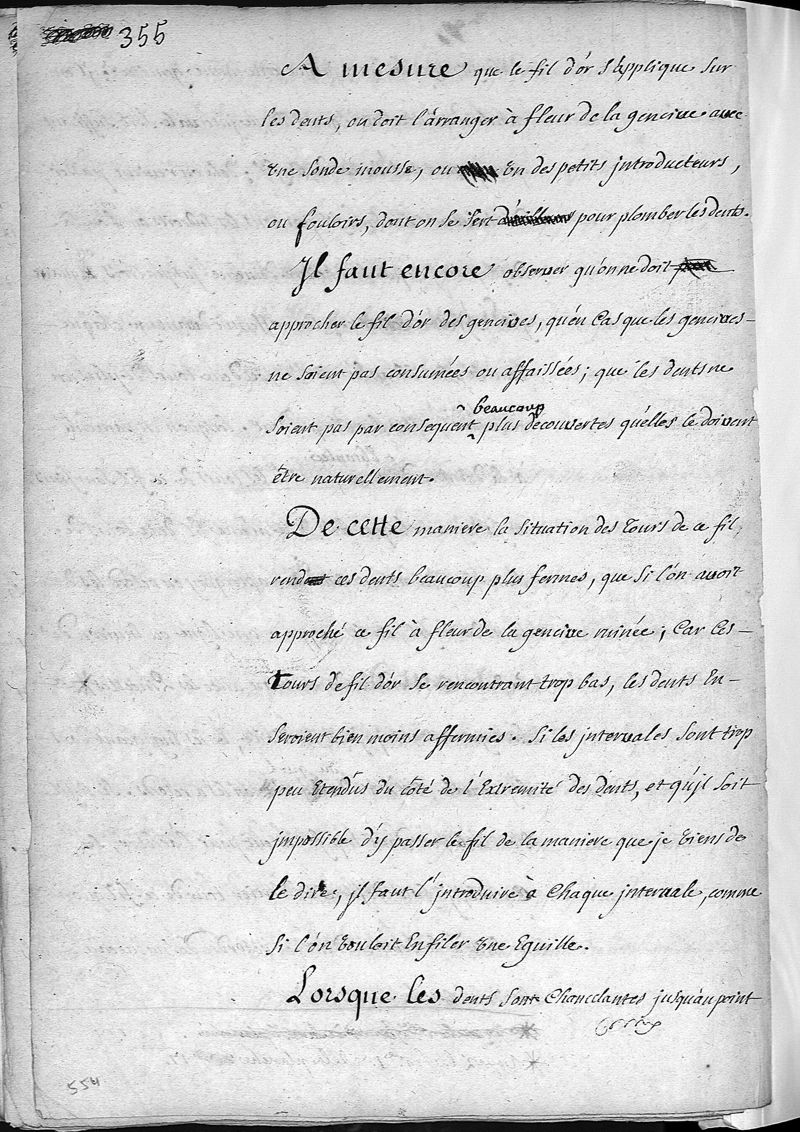 355
A mesure que le fil d'or s'applique sur
les dents, on doit l'arranger à fleur de la gencive avec
une sonde mousse, ou un des petits introducteurs,
ou fouloirs, dont on se sert pour plomber les dents.
Il faut encore observer qu'on ne doit
approcher le fil d'or des gencives, qu'en cas que les gencives
ne soient pas consumées ou affaissées; que les dents ne
beaucoup
soient pas par consequent plus decouvertes qu'elles le doivent
être naturellement.
De cette maniere la situation des tours de ce fil
rend ces dents beaucoup plus fermes, que si l'on avoit
approché ce fil à fleur de la gencive ruinée; car ces
tours de fil d'or se rencontrant trop bas, les dents en
seroient bien moins affermies. Si les intervales sont trop
peu etendus du côté de l'extremité des dents, et qu'jl soit
jmpossible d'y passer le fil de la maniere que je viens de
le dire, jl faut l'jntroduire à chaque jntervale, comme
si l'on vouloit enfiler une eguille.
Lorsque les dents sont chancelantes jusqu'au point
554